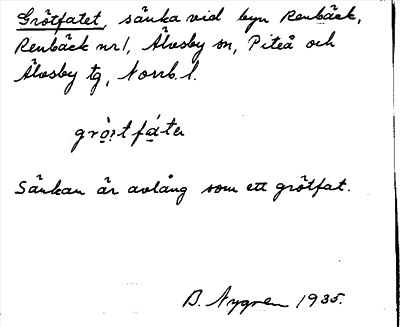 Grötfatet, sänka vid byn Renbäck,
Renbäck nr 1, Älvsby sn, Piteå och
Älvsby tg, Norrb. l.
Sänkan är avlång som ett grötfat.
B. Nygren 1935.